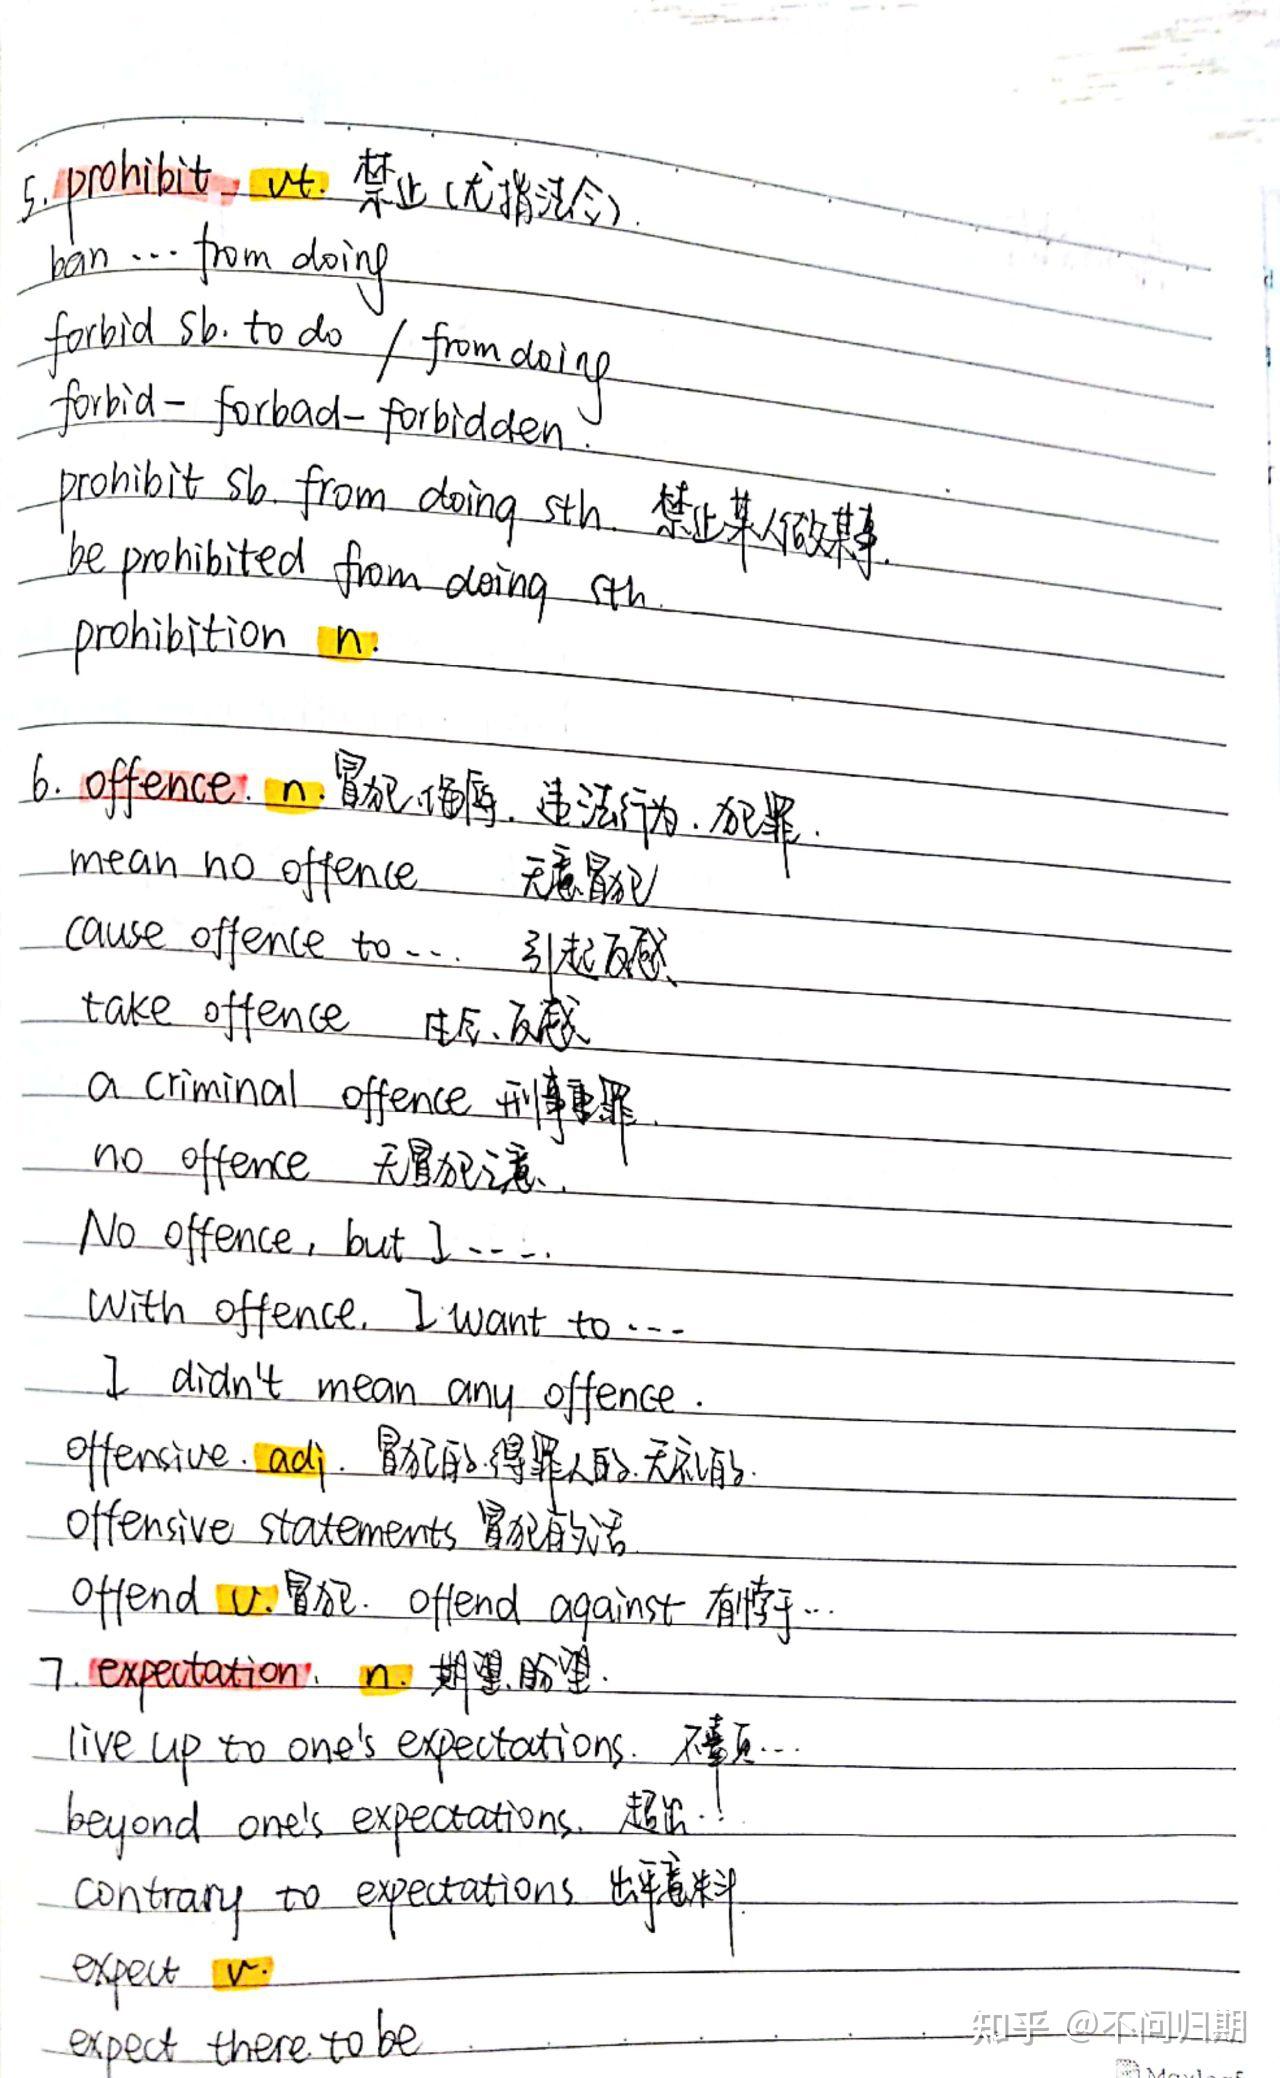 5. prohibit vt. 禁止(尤指法令).
ban ... from doing
forbid sb. to do / from doing
forbid - forbad - forbidden.
prohibit sb. from doing sth. 禁止某人做某事.
be prohibited from doing sth.
prohibition n.
6. offence. n. 冒犯、侮辱. 违法行为. 犯罪.
mean no offence 无意冒犯
cause offence to ... 引起反感
take offence 生气、反感
a criminal offence 刑事罪.
no offence 无冒犯之意.
No offence, but I ....
With offence. I want to ...
I didn't mean any offence.
offensive. adj. 冒犯的.得罪人的.无礼的.
offensive statements 冒犯的话
offend v. 冒犯. offend against 有悖于...
7. expectation. n. 期望.盼望.
live up to one's expectations. 不辜负...
beyond one's expectations. 超出..
contrary to expectations 出乎意料
expect v.
expect there to be
知乎 @不问归期